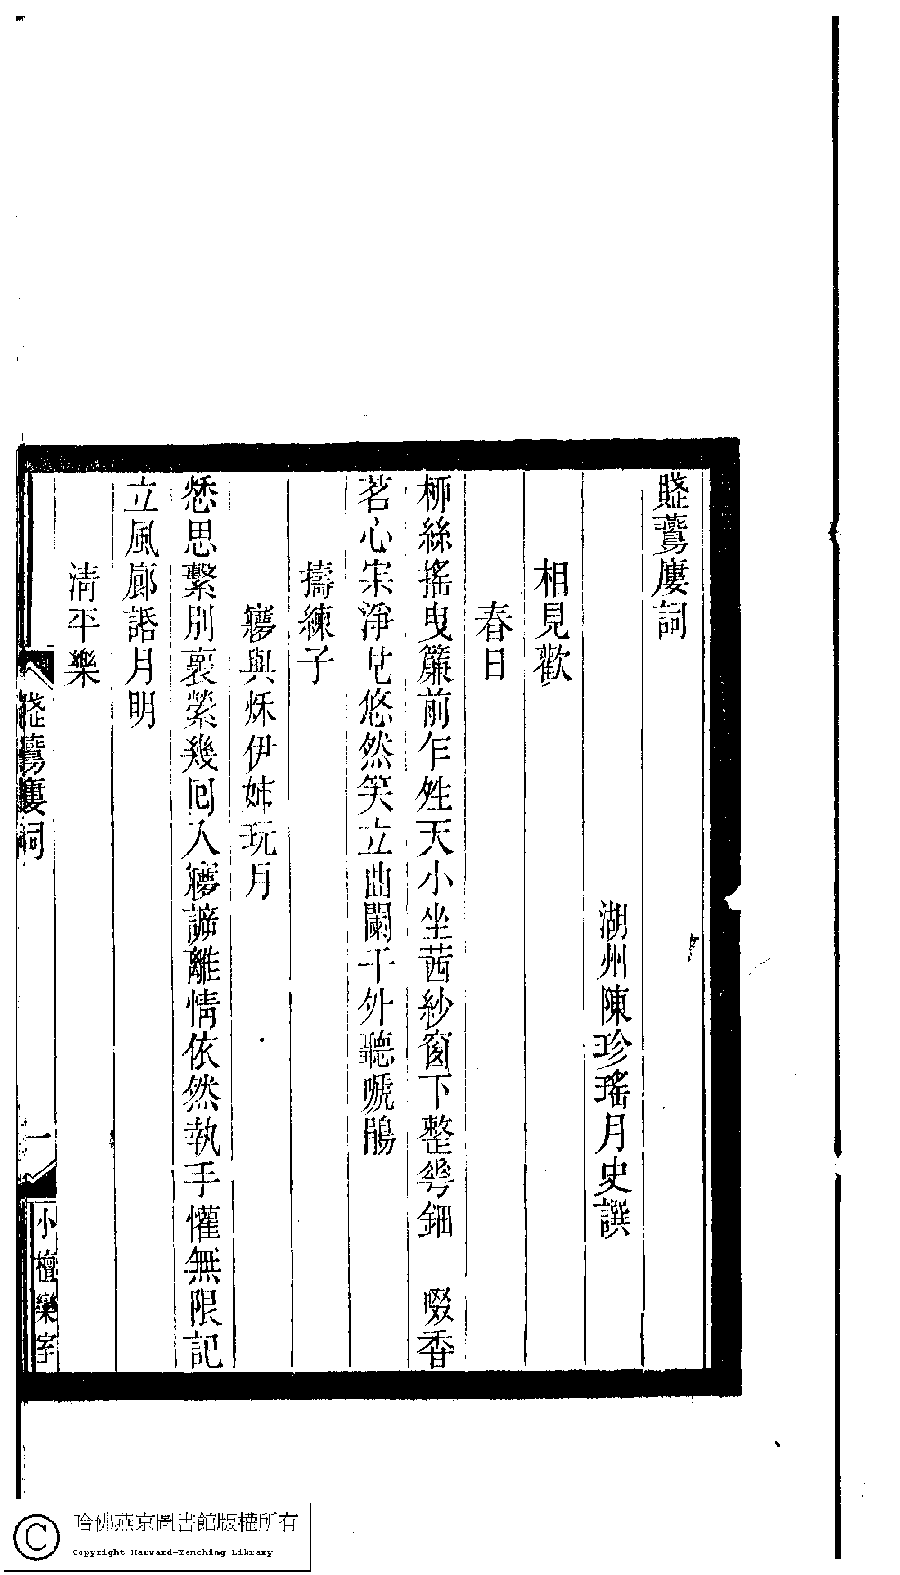 廔詞
湖州陳珍瑤月史譔
相見歡
春日
柳絲搖曳簾前乍夝天小坐茜紗窗下整𠌶鈿　啜香
茗心㝕淨皃悠然笑立曲闌干外聽嗁鵑
擣練子
㝱與穌伊姊玩月
愁思繫別褱縈幾囘入㝱謶離情依然執手懽無限記
立風廊䛡月明
清平樂
廔詞
一
小檀欒室
哈佛燕京圖書館版權所有
Copyright Harvard-Yenching Library